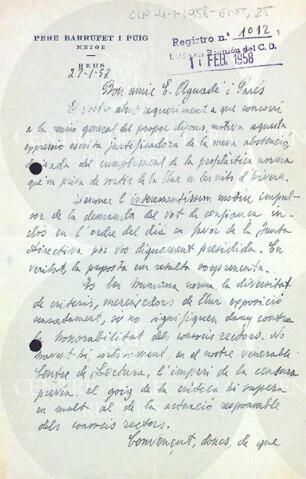 CLR 4-1-1958-EINT, 25
PERE BARRUFET I PUIG
METGE
REUS
Registro n.º 1012
Reunión del C. D.
11 FEB. 1958
27-1-58
Bon amic E. Aguadé i Parés
El vostre atent requeriment a que concorri
a la reunió general del proper dijous, motiva aquesta
expressió escrita justificadora de la meva abstenció,
derivada del compliment de la profilàctica norma
que'm priva de sortir de la llar en les nits d'hivern.
l'interessantíssim motiu impul-
sor de la demanda del vot de confiança in-
clos en l'ordre del dia en favor de la Junta
Directiva por vos dignament presidida. En
veritat, la proposta em resulta sorprenenta.
Es ben humana norma la diversitat
de criteris, mereixedors de llur exposició
assenyadament, si no signifiquen dany contra
la honorabilitat del consocis rectors. No
havent hi, ortosament, en el nostre venerable
Centre de Lectura, l'imperi de la censura
prèvia el goig de la crítica hi supera
en molt al de la actuació responsable
dels consocis rectors.
Convençut, doncs, de que